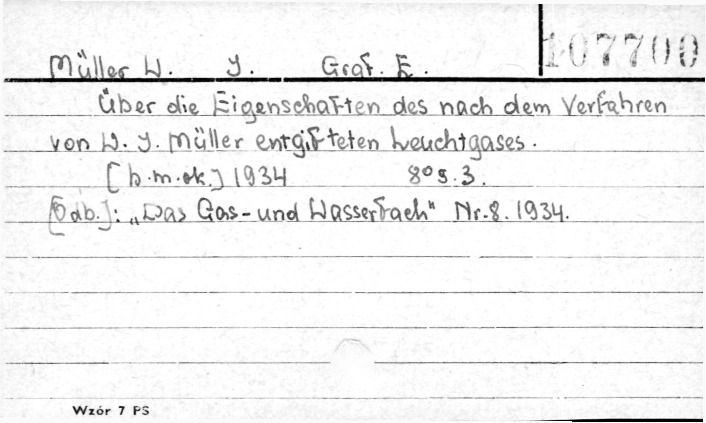 107700
Müller W. J. Graf. E.
Über die Eigenschaften des nach dem Verfahren
von W. J. Müller entgifteten Leuchtgases.
[b.m.ok.] 1934 8° s.3.
[Odb.]: „Das Gas-und Wasserfach" Nr.8.1934.
Wzór 7 PS